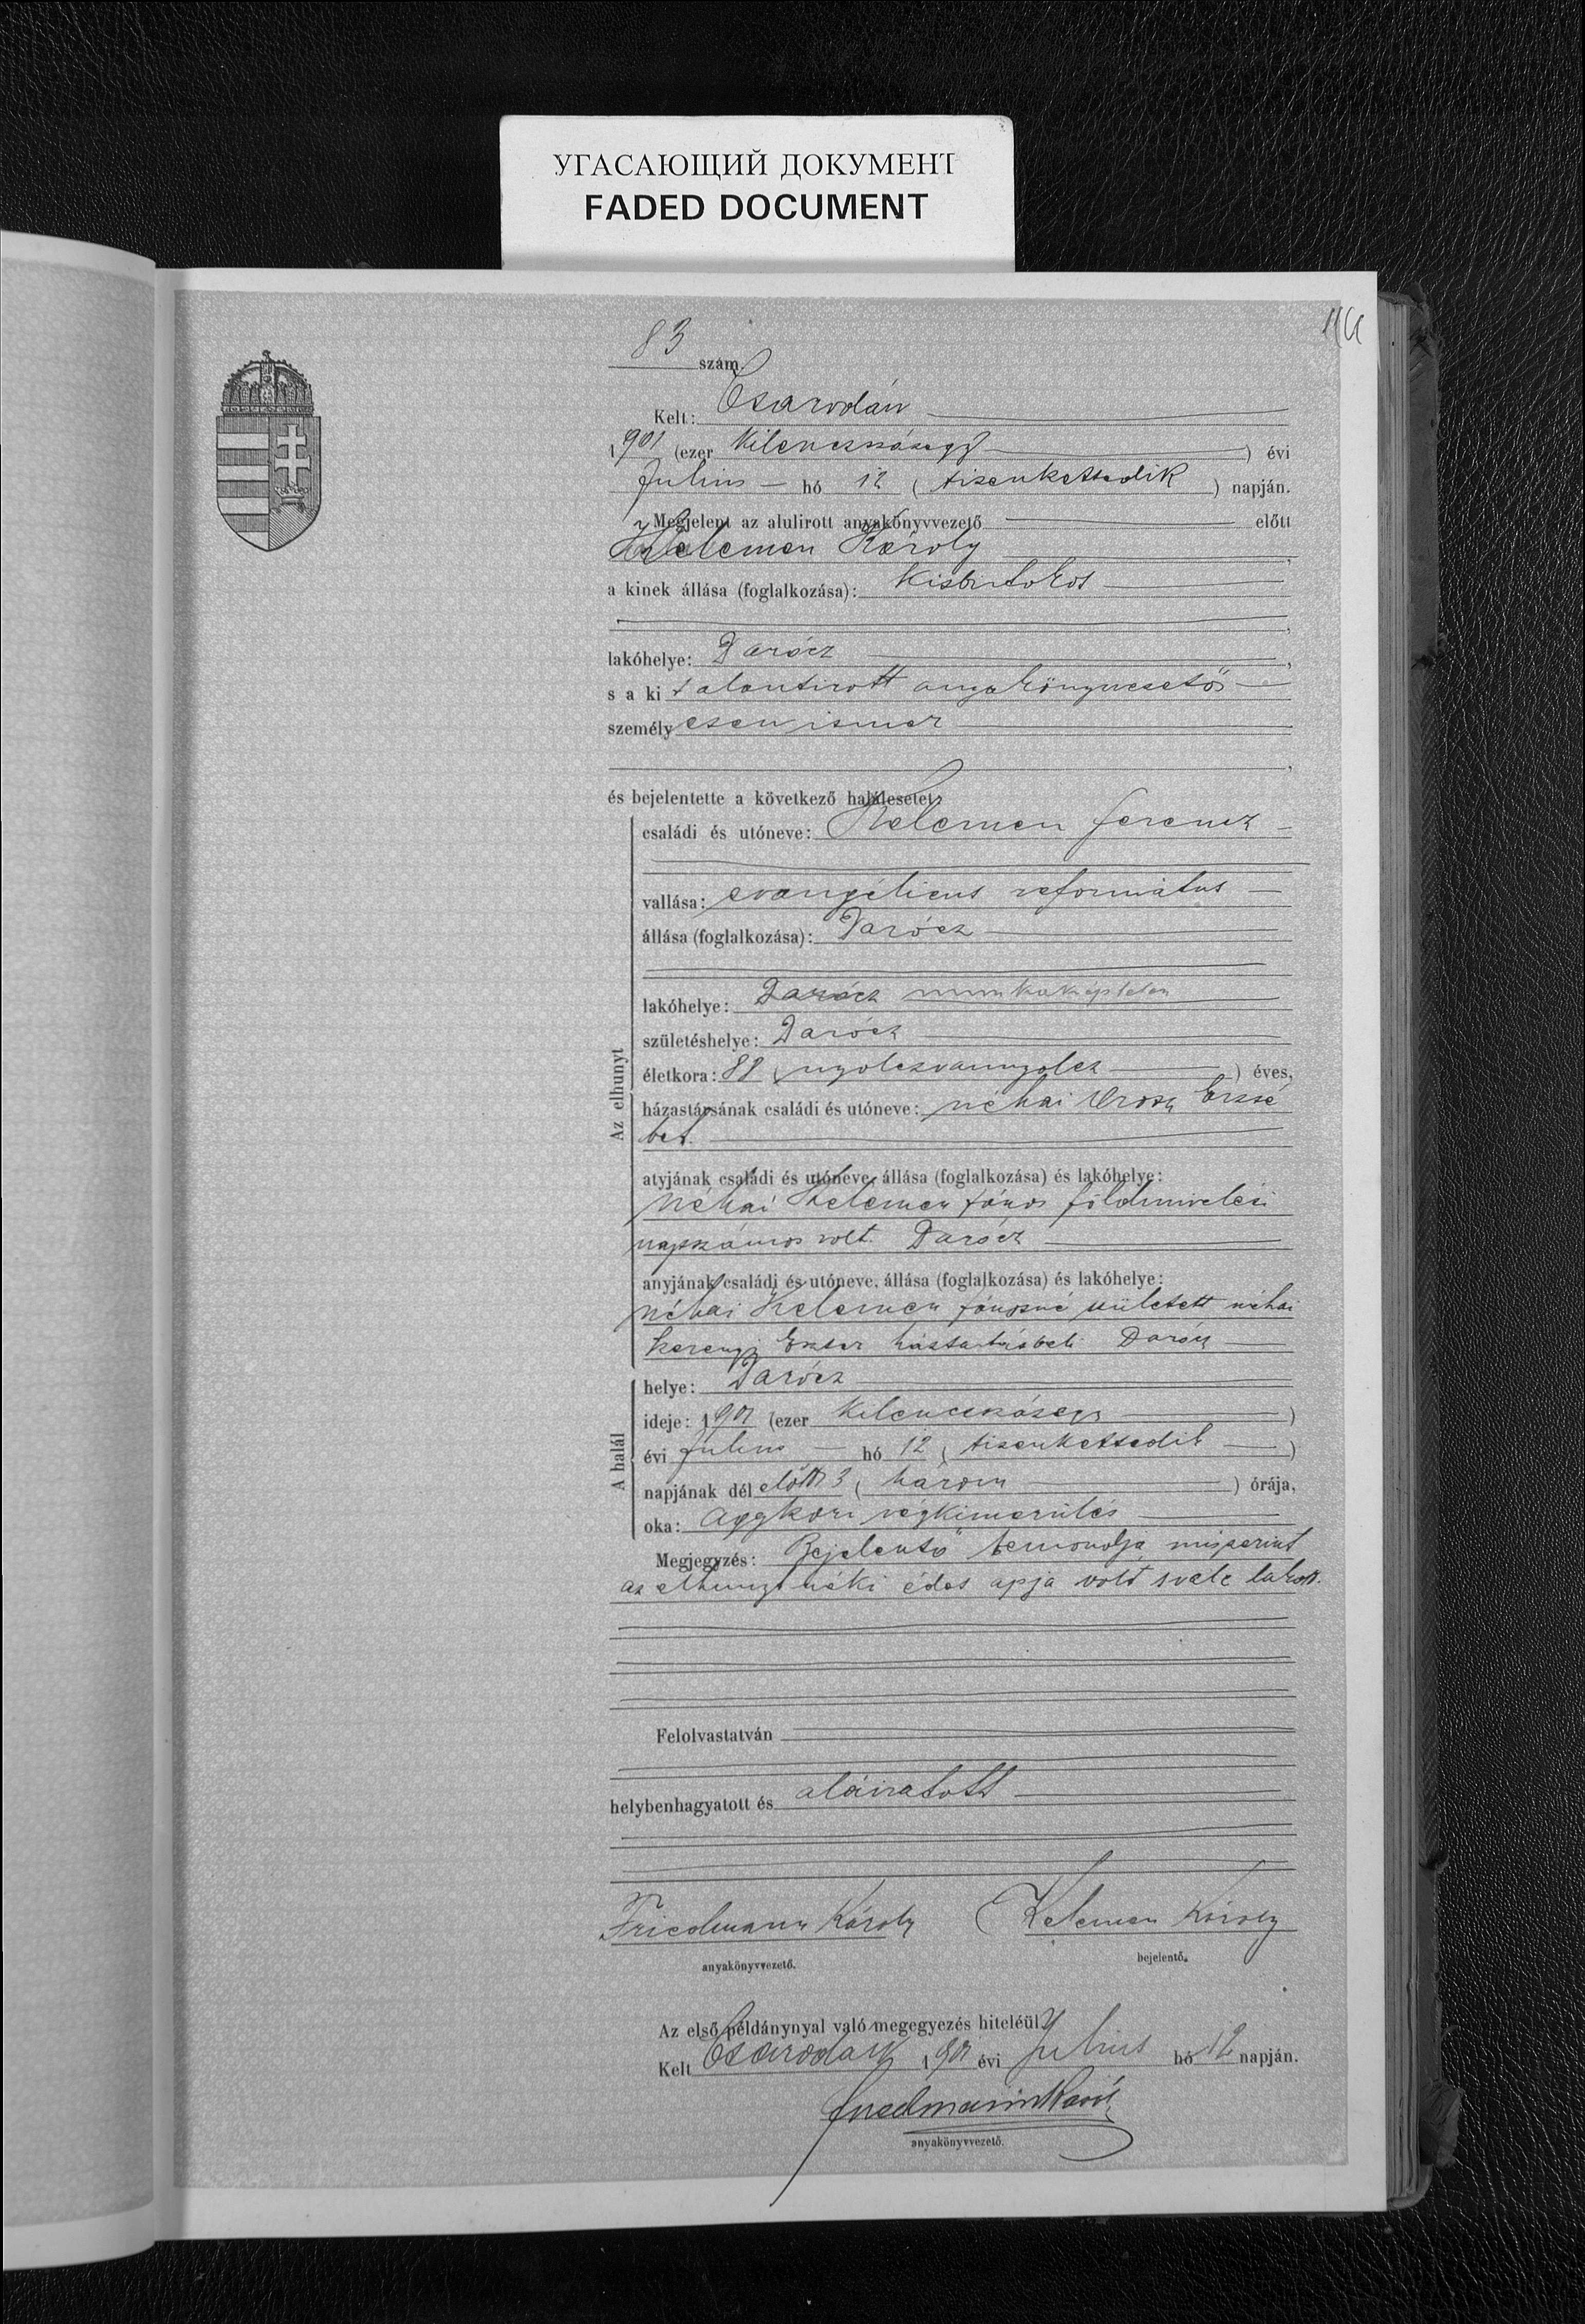 УГАСАЮЩИЙ ДОКУМЕНТ
FADED DOCUMENT
83 szám.
Kelt: Csarodán
1901 (ezer kilenczszázegy) évi
Julius hó 12 (tizenkettedik) napján.
Megjelent az alulirott anyakönyvvezető előtt
Kelemen Károly,
a kinek állása (foglalkozása): kisbirtokos
lakóhelye: Darócz,
s a ki t alantirott anyakönyvvezető
személyesen ismer
és bejelentette a következő halálesetet:
Az elhunyt
családi és utóneve: Kelemen Ferencz
vallása: evangélicus református
állása (foglalkozása): Darócz
lakóhelye: Darócz munkaképtelen
születéshelye: Darócz
életkora: 88 (nyolczvannyolcz) éves,
házastársának családi és utóneve: néhai Orosz Erzsé
bet.
atyjának családi és utóneve, állása (foglalkozása) és lakóhelye:
néhai Kelemen János földmivelési
napszámos volt. Darócz
anyjának családi és utóneve, állása (foglalkozása) és lakóhelye:
néhai Kelemen Jánosné született néhai
Eszter háztartásbeli Darócz
A halál
helye: Darócz
ideje: 1901 (ezer kilenczszázegy)
évi Julius hó 12 (tizenkettedik)
napjának dél előtt 3 (három) órája,
oka: Aggkori végkimerülés
Megjegyzés: Bejelentő bemondja miszerint
az elhunyt néki édes apja volt s vele lakott.
Felolvastatván
helybenhagyatott és aláiratott
Friedmann Károly Kelemen Károly
anyakönyvvezető. bejelentő.
Az első példánynyal való megegyezés hiteléül
Kelt Csarodán 1901 évi Julius hó 12 napján.
Friedmann Károly
anyakönyvvezető.